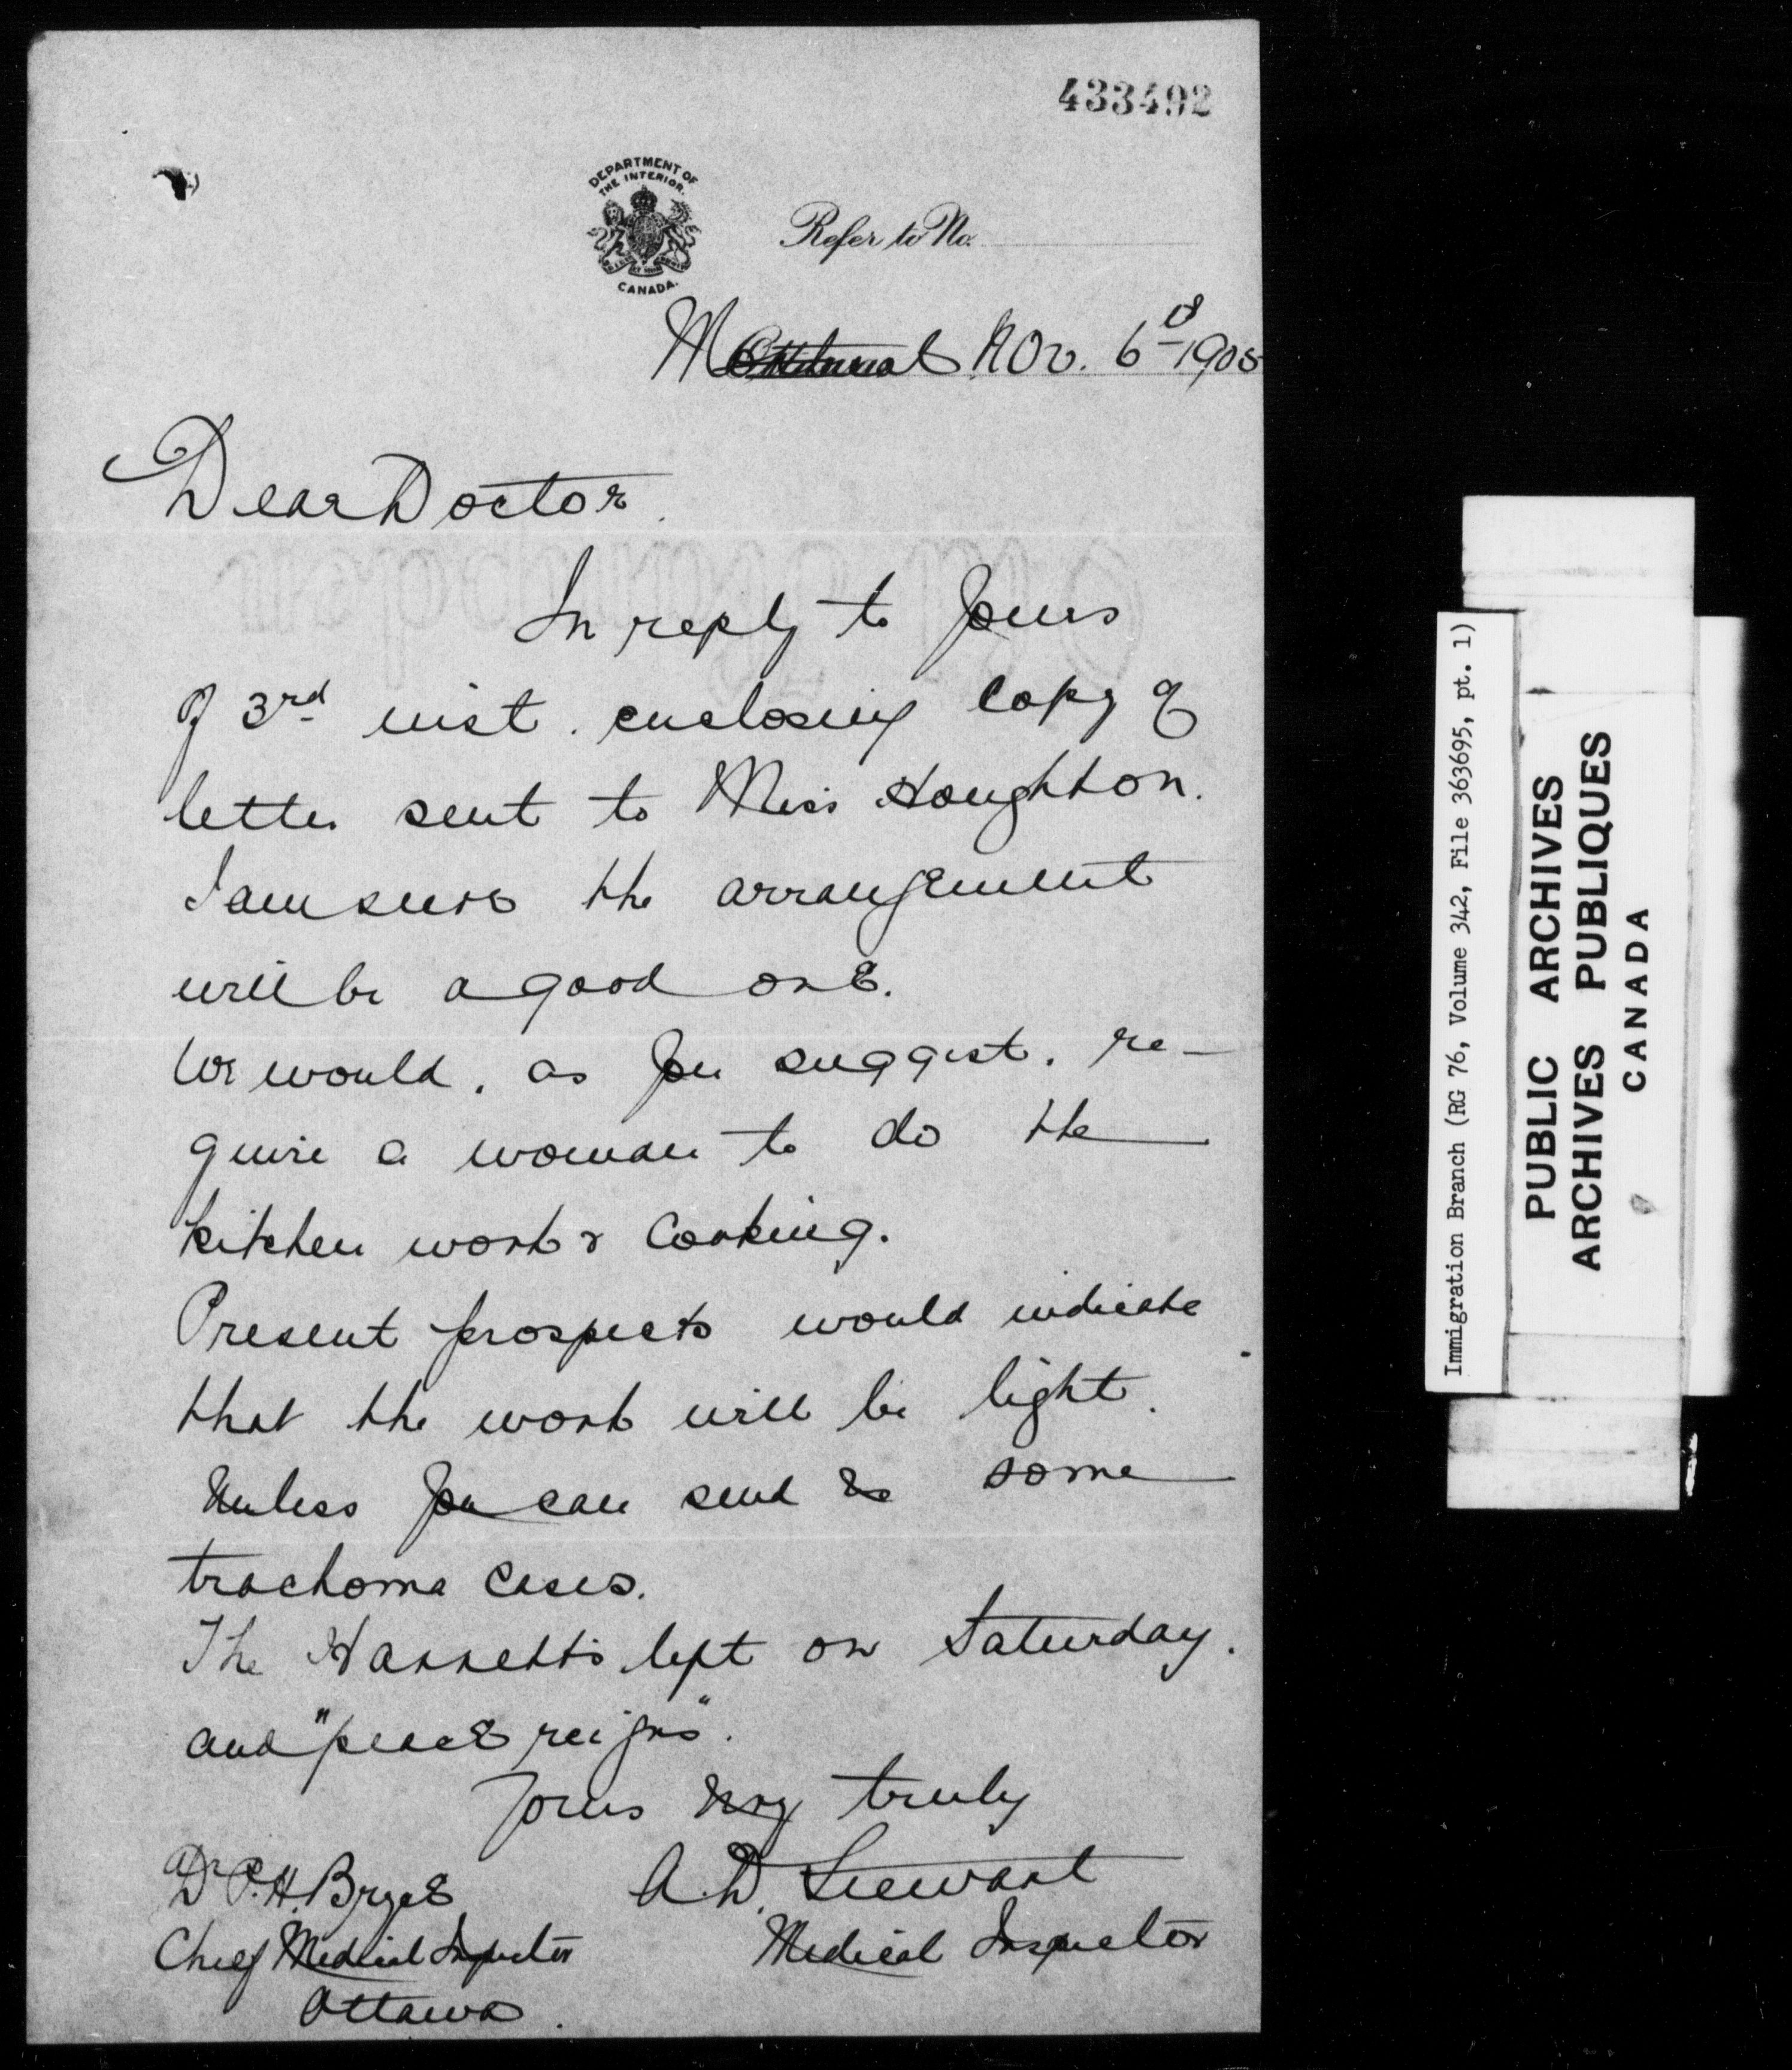 433492
DEPARTMENT OF
THE INTERIOR.
CANADA.
Refer to No.
Montreal Nov. 6th 1905
Dear Doctor
In reply to yours
of 3rd inst. enclosing copy of
letter sent to Miss Houghton.
I am sure the arrangement
will be a good one.
We would, as you suggest, re-
quire a woman to do the
kitchen work & cooking.
Present prospects would indicate
that the work will be light.
Unless you can send us some
trachoma cases.
The left on Saturday.
and "peace reigns".
Yours very truly
A.D. Stewart
Medical Inspector
Dr P.H. Bryce
Chief Medical Inspector
Ottawa.
Immigration Branch (RG 76, Volume 342, File 363695, pt. 1)
PUBLIC ARCHIVES
ARCHIVES PUBLIQUES
CANADA